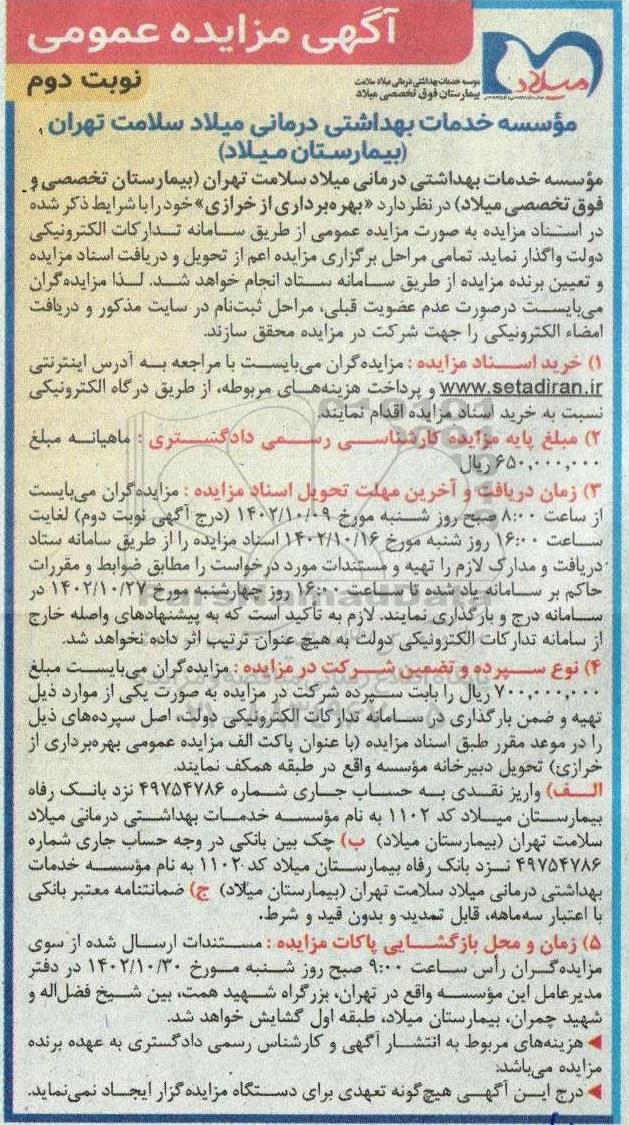 آگهی مزایده عمومی
نوبت دوم
میلاد
موسسه خدمات بهداشتی درمانی میلاد سلامت
بیمارستان فوق تخصصی میلاد
مؤسسه خدمات بهداشتی درمانی میلاد سلامت تهران
(بیمارستان میلاد)
مؤسسه خدمات بهداشتی درمانی میلاد سلامت تهران (بیمارستان تخصصی و
فوق تخصصی میلاد) در نظر دارد «بهره‌برداری از خرازی» خود را با شرایط ذکر شده
در اسناد مزایده به صورت مزایده عمومی از طریق سامانه تدارکات الکترونیکی
دولت واگذار نماید. تمامی مراحل برگزاری مزایده اعم از تحویل و دریافت اسناد مزایده
و تعیین برنده مزایده از طریق سامانه ستاد انجام خواهد شد. لذا مزایده‌گران
می‌بایست درصورت عدم عضویت قبلی، مراحل ثبت‌نام در سایت مذکور و دریافت
امضاء الکترونیکی را جهت شرکت در مزایده محقق سازند.
۱) خرید اسناد مزایده : مزایده‌گران می‌بایست با مراجعه به آدرس اینترنتی
www.setadiran.ir و پرداخت هزینه‌های مربوطه، از طریق درگاه الکترونیکی
نسبت به خرید اسناد مزایده اقدام نمایند.
۲) مبلغ پایه مزایده کارشناسی رسمی دادگستری : ماهیانه مبلغ
۶۵۰,۰۰۰,۰۰۰ ریال
۳) زمان دریافت و آخرین مهلت تحویل اسناد مزایده : مزایده‌گران می‌بایست
از ساعت ۸:۰۰ صبح روز شنبه مورخ ۱۴۰۲/۱۰/۰۹ (درج آگهی نوبت دوم) لغایت
ساعت ۱۶:۰۰ روز شنبه مورخ ۱۴۰۲/۱۰/۱۶ اسناد مزایده را از طریق سامانه ستاد
دریافت و مدارک لازم را تهیه و مستندات مورد درخواست را مطابق ضوابط و مقررات
حاکم بر سامانه یاد شده تا ساعت ۱۶:۰۰ روز چهارشنبه مورخ ۱۴۰۲/۱۰/۲۷ در
سامانه درج و بارگذاری نمایند. لازم به تأکید است که به پیشنهادهای واصله خارج
از سامانه تدارکات الکترونیکی دولت به هیچ عنوان ترتیب اثر داده نخواهد شد.
۴) نوع سپرده و تضمین شرکت در مزایده : مزایده‌گران می‌بایست مبلغ
۷۰۰,۰۰۰,۰۰۰ ریال را بابت سپرده شرکت در مزایده به صورت یکی از موارد ذیل
تهیه و ضمن بارگذاری در سامانه تدارکات الکترونیکی دولت، اصل سپرده‌های ذیل
را در موعد مقرر طبق اسناد مزایده (با عنوان پاکت الف مزایده عمومی بهره‌برداری از
خرازی) تحویل دبیرخانه مؤسسه واقع در طبقه همکف نمایند.
الف) واریز نقدی به حساب جاری شماره ۴۹۷۵۴۷۸۶ نزد بانک رفاه
بیمارستان میلاد کد ۱۱۰۲ به نام مؤسسه خدمات بهداشتی درمانی میلاد
سلامت تهران (بیمارستان میلاد) ب) چک بین بانکی در وجه حساب جاری شماره
۴۹۷۵۴۷۸۶ نزد بانک رفاه بیمارستان میلاد کد ۱۱۰۲ به نام مؤسسه خدمات
بهداشتی درمانی میلاد سلامت تهران (بیمارستان میلاد) ج) ضمانتنامه معتبر بانکی
با اعتبار سه‌ماهه، قابل تمدید و بدون قید و شرط.
۵) زمان و محل بازگشایی پاکات مزایده : مستندات ارسال شده از سوی
مزایده‌گران رأس ساعت ۹:۰۰ صبح روز شنبه مورخ ۱۴۰۲/۱۰/۳۰ در دفتر
مدیرعامل این مؤسسه واقع در تهران، بزرگراه شهید همت، بین شیخ فضل‌اله و
شهید چمران، بیمارستان میلاد، طبقه اول گشایش خواهد شد.
◄ هزینه‌های مربوط به انتشار آگهی و کارشناس رسمی دادگستری به عهده برنده
مزایده می‌باشد.
◄ درج این آگهی هیچ‌گونه تعهدی برای دستگاه مزایده‌گزار ایجاد نمی‌نماید.